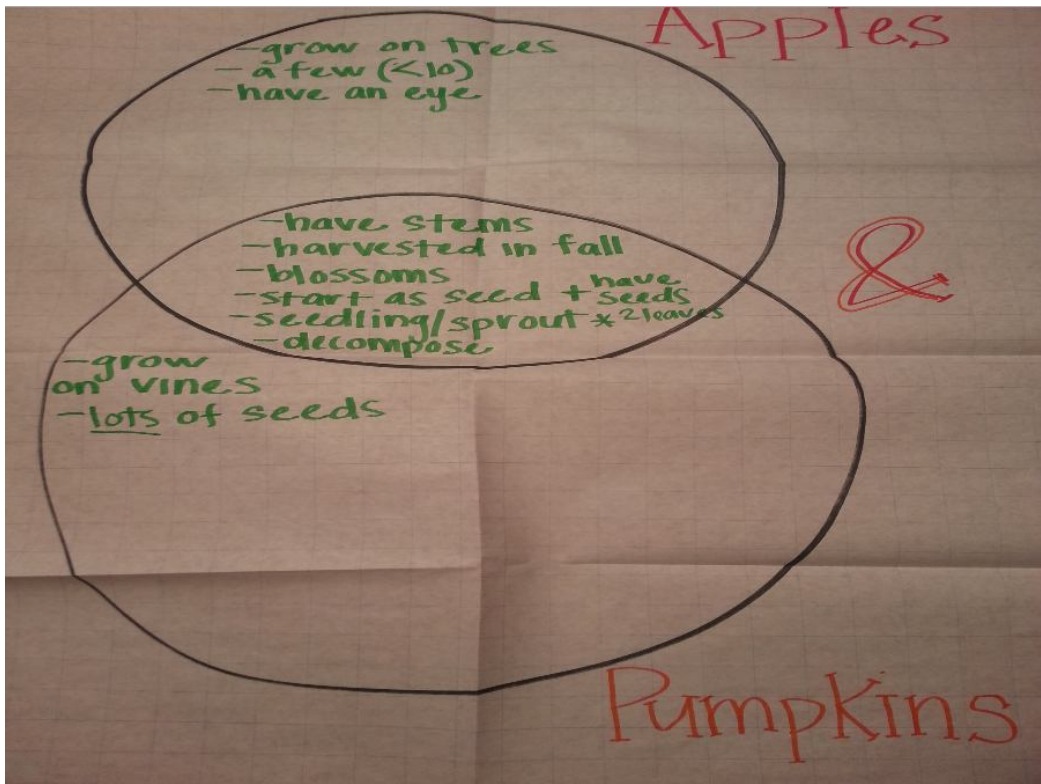 Apples
-grow on trees
-a few (<10)
-have an eye
-have stems
-harvested in fall
-blossoms
-start as seed + have seeds
-seedling/sprout *2 leaves
-decompose
&
-grow
on vines
-lots of seeds
Pumpkins